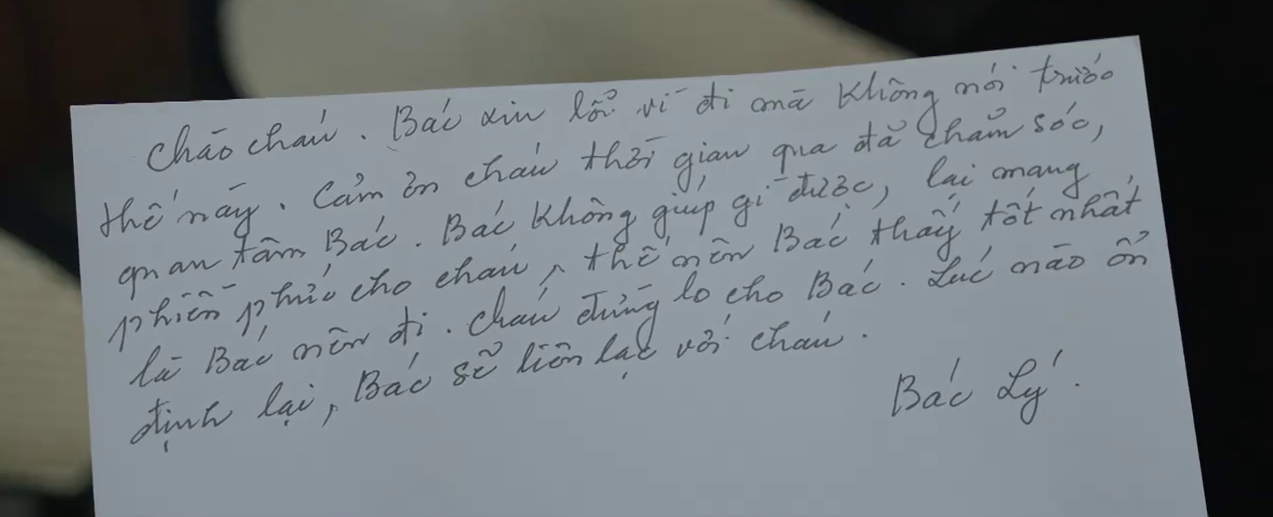 Chào cháu. Bác xin lỗi vì đi mà không nói trước
thế này. Cảm ơn cháu thời gian qua đã chăm sóc,
quan tâm Bác. Bác không giúp gì được, lại mang
phiền phức cho cháu, thế nên Bác thấy tốt nhất
là Bác nên đi. Cháu đừng lo cho Bác. Lúc nào ổn
định lại, Bác sẽ liên lạc với cháu.
Bác Lý.